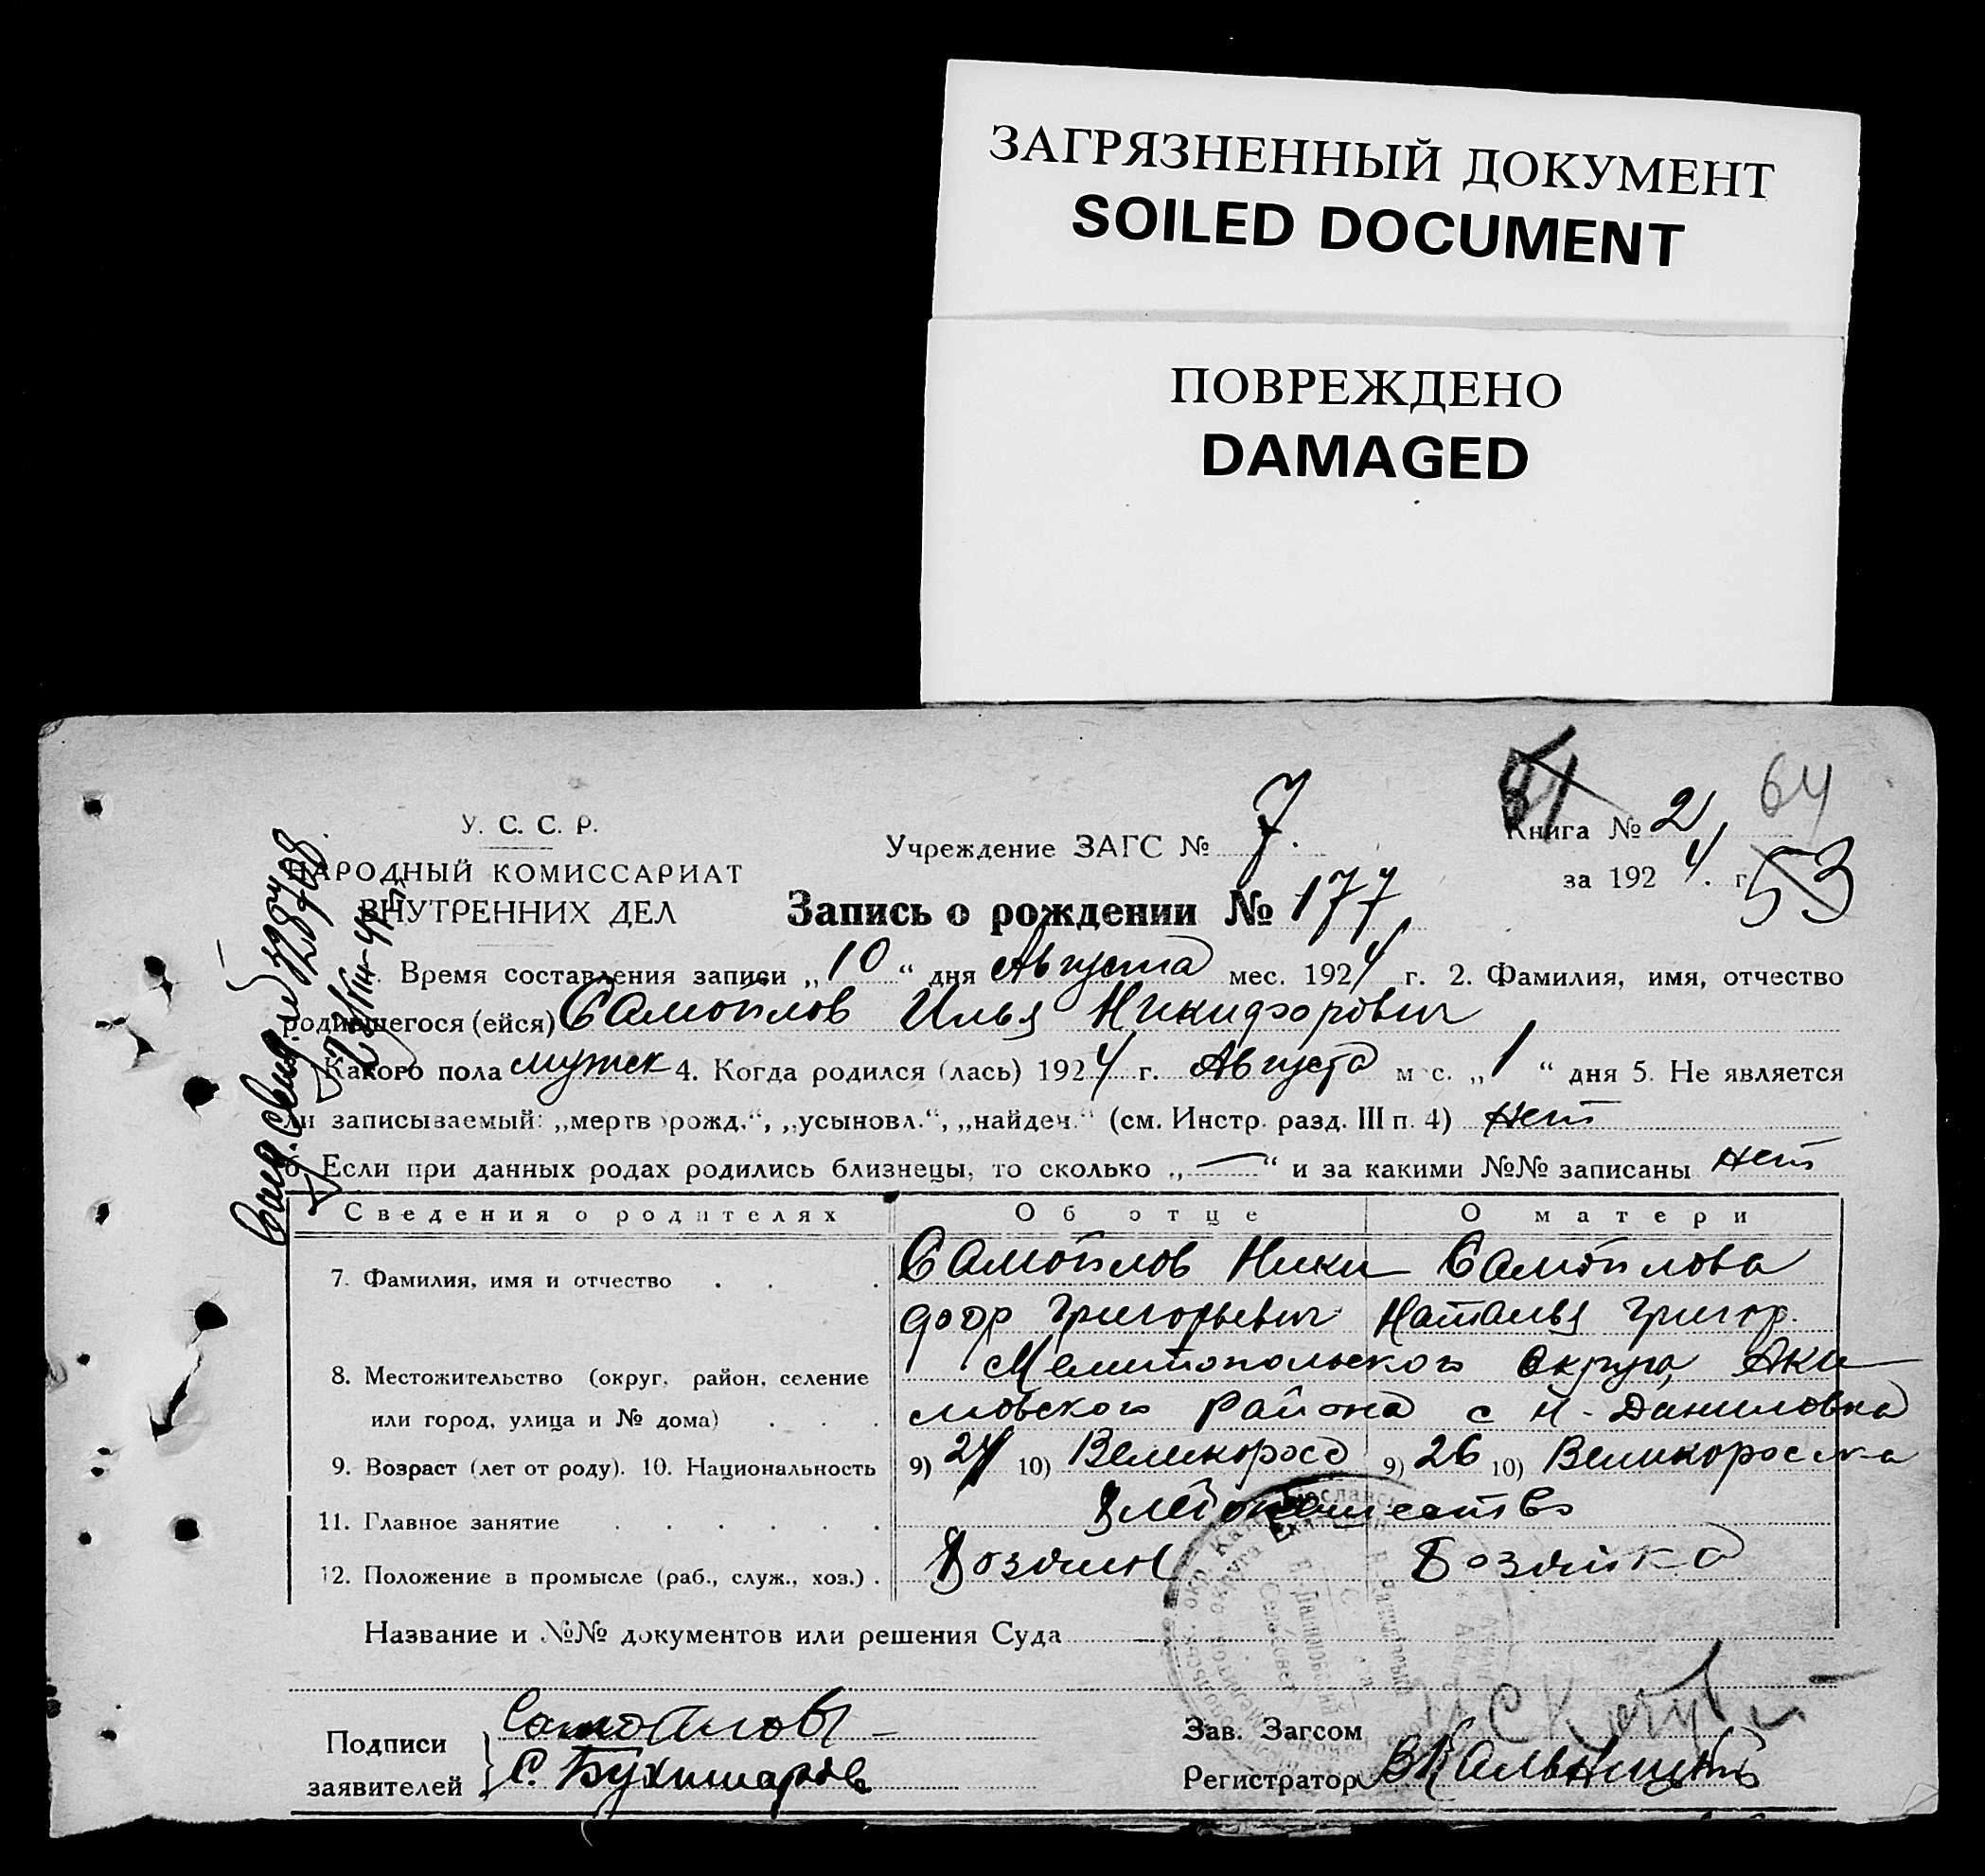 ЗАГРЯЗНЕННЫЙ ДОКУМЕНТ
SOILED DOCUMENT
ПОВРЕЖДЕНО
DAMAGED
У. С. С. Р.
НАРОДНЫЙ КОМИССАРИАТ
ВНУТРЕННИХ ДЕЛ
Учреждение ЗАГС № 7.
Книга № 2
64
за 1924. г.
53
Запись о рождении № 177
Время составления записи „10“ дня Августа мес. 1924 г. 2. Фамилия, имя, отчество
родившегося (ейся) Самойлов Илья Никифорович
Какого пола мужск 4. Когда родился (лась) 1924 г. Августа мес. „1“ дня 5. Не является
ли записываемый: „мертворожд.“, „усыновл.“, „найден.“ (см. Инстр. разд. III п. 4) Нет
6. Если при данных родах родились близнецы, то сколько „—“ и за какими №№ записаны Нет
Сведения о родителях Об отце О матери
7. Фамилия, имя и отчество . . . Самойлов Ники- Самойлова
фор Григорьевич Наталья Григор.
8. Местожительство (округ, район, селение Мелитопольского Округа, Аки-
или город, улица и № дома) . . . мовского Района с Н-Даниловка
9. Возраст (лет от роду). 10. Национальность 9) 24 10) Великоросс 9) 26 10) Великоросска
11. Главное занятие . . . . . .
12. Положение в промысле (раб., служ., хоз.) . Хозяин Хозяйка
Название и №№ документов или решения Суда
Подписи
заявителей
Самойловы
С.
Зав. Загсом
Регистратор ВКальницкий